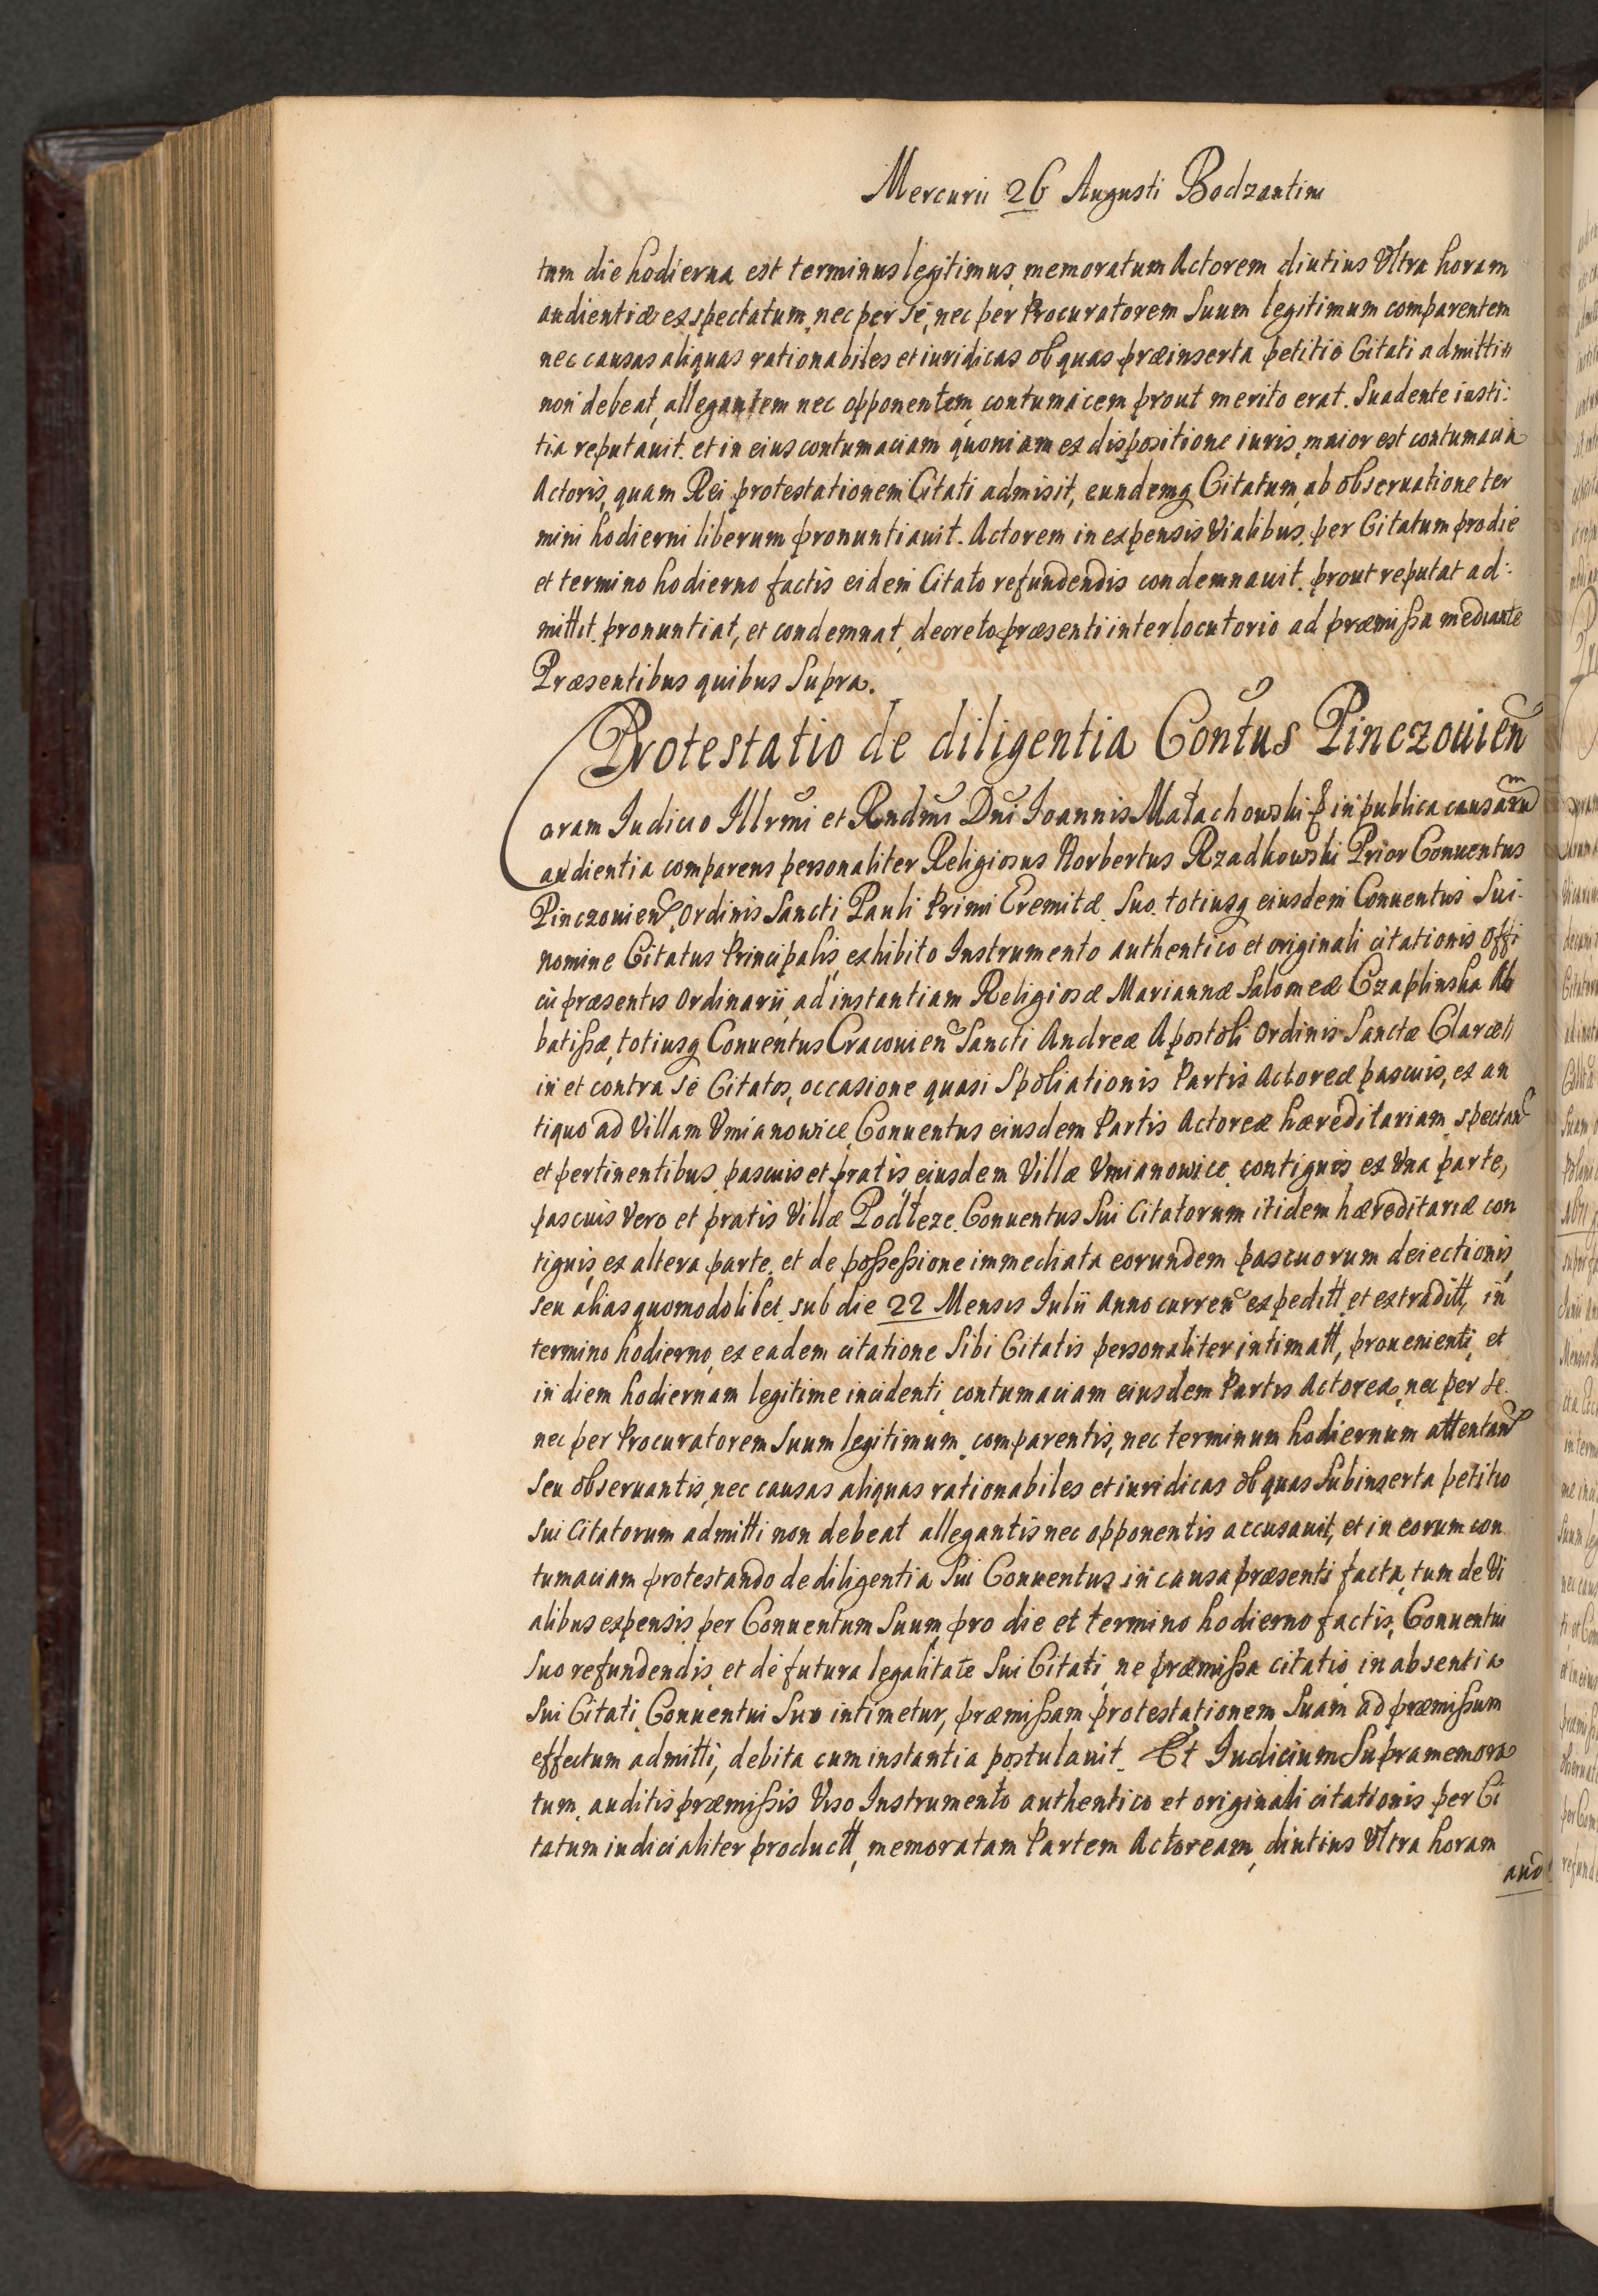 Mercurii 26 Augusti Bodzantini
tum die hodierna est terminus legitimus, memoratum Actorem diutius Vltra horam
audientiæ exspectatum, nec per sé, nec per Procuratorem Suum legitimum comparentem
nec causas aliquas rationabiles et iuridicas ob quas præinserta petitio Citati admittii
non debeat, allegantem nec opponentem, contumacem prout merito erat. Suadente iusti:
tia reputauit. et in eius contumaciam quoniam ex dispositione iuris, maior est contumacia
Actoris, quam Rei protestationem Citati admisit, eundemq Citatum, ab obseruatione ter
mini hodierni liberum pronuntiauit. Actorem in expensis Vialibus, per Citatum pro die
et termino hodierno factis eidem Citato refundendis condemnauit. prout reputat ad:
mittit. pronuntiat, et condemnat, decreto præsenti interlocutorio ad præmissa mediante
Præsentibus quibus Supra.
Protestatio de diligentia Contus Pinczouien
Coram Iudicio Illrmi et Rndmi Dni Ioannis Małachowski & in publica causarum
audientia comparens personaliter Religiosus Norbertus Rzadkowski Prior Conuentus
Pinczouien, Ordinis Sancti Pauli Primi Eremitæ. Suo. totiusq eiusdem Conuentus Sui.
nomine Citatus Principalis, exhibito Instrumento authentico et originali citationis Offi
cii præsentis Ordinarii, ad instantiam Religiosæ Mariannæ Salomeæ Czaplinska Ab
batissæ, totiusq Conuentus Cracouien Sancti Andreæ Apostoli Ordinis Sanctæ Claræ
in et contra sé Citatos, occasione quasi Spoliationis Partis Actoreæ pascuis, ex an
tiquo ad Villam Vmianowice, Conuentus eiusdem Partis Actoreæ hæreditariam, spectan
et pertinentibus, pascuis et pratis eiusdem Villæ Vmianowice, contiguis ex Vna parte,
pascuis vero et pratis Villæ Podłeze. Conuentus Sui Citatorum itidem hæreditariæ con
tiguis ex altera parte. et de possessione immediata eorundem pascuorum deiectionis,
seu alias quomodolibet. sub die 22 Mensis Iulii Anno curren expeditt et extraditt, in
termino hodierno, ex eadem citatione Sibi Citatis personaliter intimatt, prouenienti, et
in diem hodiernam legitime incidenti, contumaciam eiusdem Partis Actoreæ, nec per se.
nec per Procuratorem Suum legitimum comparentis, nec terminum hodiernum attentan
seu obseruantis, nec causas aliquas rationabiles et iuridicas ob quas Subinserta petitio
sui Citatorum admitti non debeat allegantis nec opponentis accusauit, et in eorum con
tumaciam protestando de diligentia Sui Conuentus in causa præsenti facta, tum de Vi
alibus expensis per Conuentum Suum pro die et termino hodierno factis, Conuentui
Suo refundendis, et de futura legalitate Sui Citati, ne præmissa citatio in absentia
Sui Citati Conuentui Suo intimetur, præmissam protestationem Suam ad præmissum
effectum admitti, debita cum instantia postulauit. Et Iudicium Supramemora
tum auditis præmissis Viso Instrumento authentico et originali citationis per Ci
tatum iudicialiter productt, memoratam Partem Actoream, diutius Vltra horam
aud